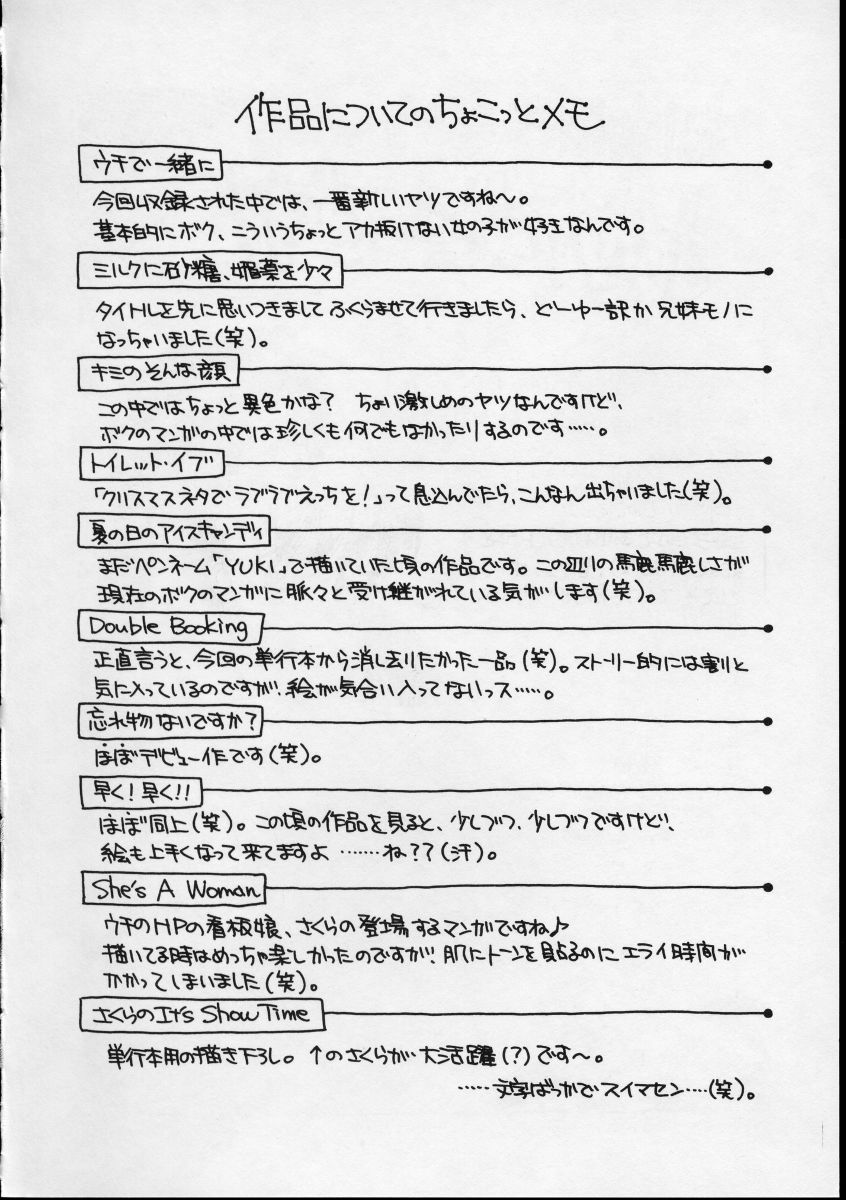 作品についてのちょこっとメモ
ウチで一緒に
今回収録された中では、一番新しいヤツですね〜。
基本的にボク、こういうちょっとアカ抜けない女の子が好きなんです。
ミルクに砂糖、媚薬を少々
タイトルを先に思いつきましてふくらませて行きましたら、どーゆー訳か兄妹モノに
なっちゃいました(笑)。
キミのそんな顔
この中ではちょっと異色かな？ ちょい激しめのヤツなんですけど、
ボクのマンガの中では珍しくも何でもなかったりするのです……。
トイレット・イブ
「クリスマスネタでラブラブえっちを！」って息込んでたら、こんなん出ちゃいました(笑)。
夏の日のアイスキャンディ
まだペンネーム「YUKI」で描いていた頃の作品です。この辺りの馬鹿馬鹿しさが
現在のボクのマンガに脈々と受け継がれている気がします(笑)。
Double Booking
正直言うと、今回の単行本から消し去りたかった一品(笑)。ストーリー的には割と
気に入っているのですが、絵が気合い入ってないっス……。
忘れ物ないですか？
ほぼデビュー作です(笑)。
早く！早く!!
ほぼ同上(笑)。この頃の作品を見ると、少しづつ、少しづつですけど、
絵も上手くなって来てますよ……ね？？(汗)。
She's A Woman
ウチのHPの看板娘、さくらの登場するマンガですね♪
描いてる時はめっちゃ楽しかったのですが、肌にトーンを貼るのにエライ時間が
かかってしまいました(笑)。
さくらのIt's Show Time
単行本用の描き下ろし。↑のさくらが大活躍(？)です〜。
……文字ばっかでスイマセン…(笑)。